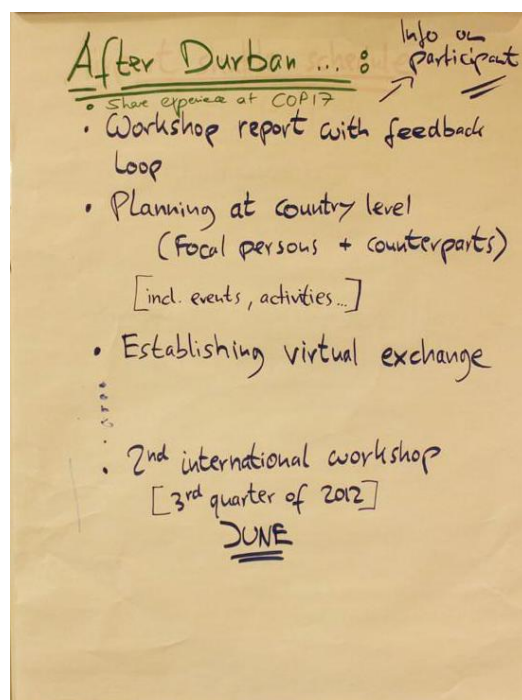 After Durban ... :
Info on
participant
• Share experience at COP17
• Workshop report with feedback
Loop
• Planning at country level
(Focal persons + counterparts)
[incl. events, activities...]
• Establishing virtual exchange
• 2nd international workshop
[3rd quarter of 2012]
JUNE